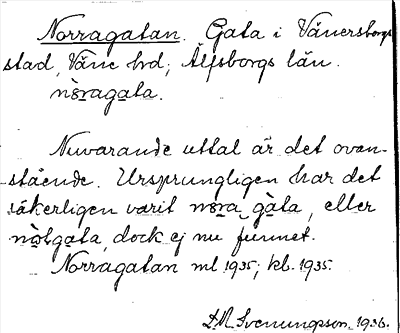 Norragatan. Gata i Vänersborgs
stad, Väne hrd; Älfsborgs län.
nòragata.
Nuvarande uttal är det ovan-
stående. Ursprungligen har det
säkerligen varit nora gàta, eller
gata, dock ej nu funnet.
Norragatan ml 1935; kb. 1935.
Svenungson. 1936.